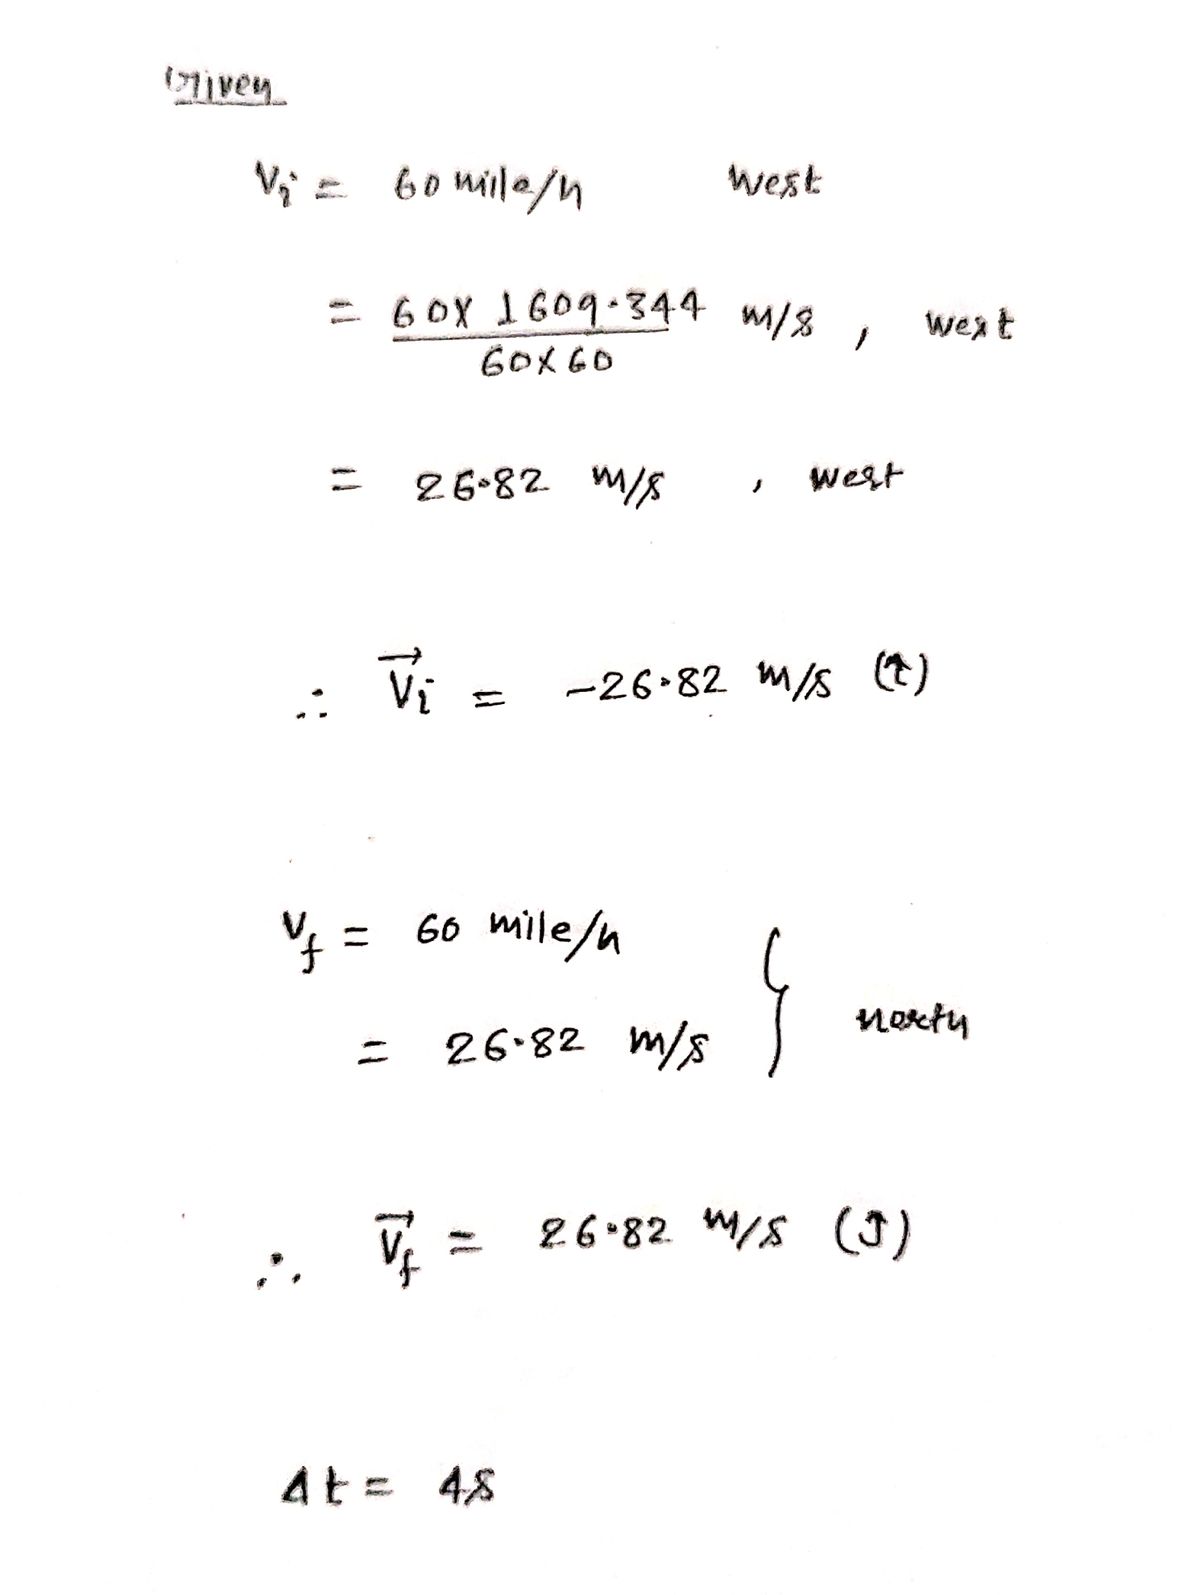 Given
Vi = 60 mile/h West
= 60X 1609.344 m/s , west
60X60
= 26.82 m/s , west
∴ V⃗i = -26.82 m/s (î)
Vf = 60 mile/h
= 26.82 m/s } north
∴ V⃗f = 26.82 m/s (ĵ)
Δt = 4s